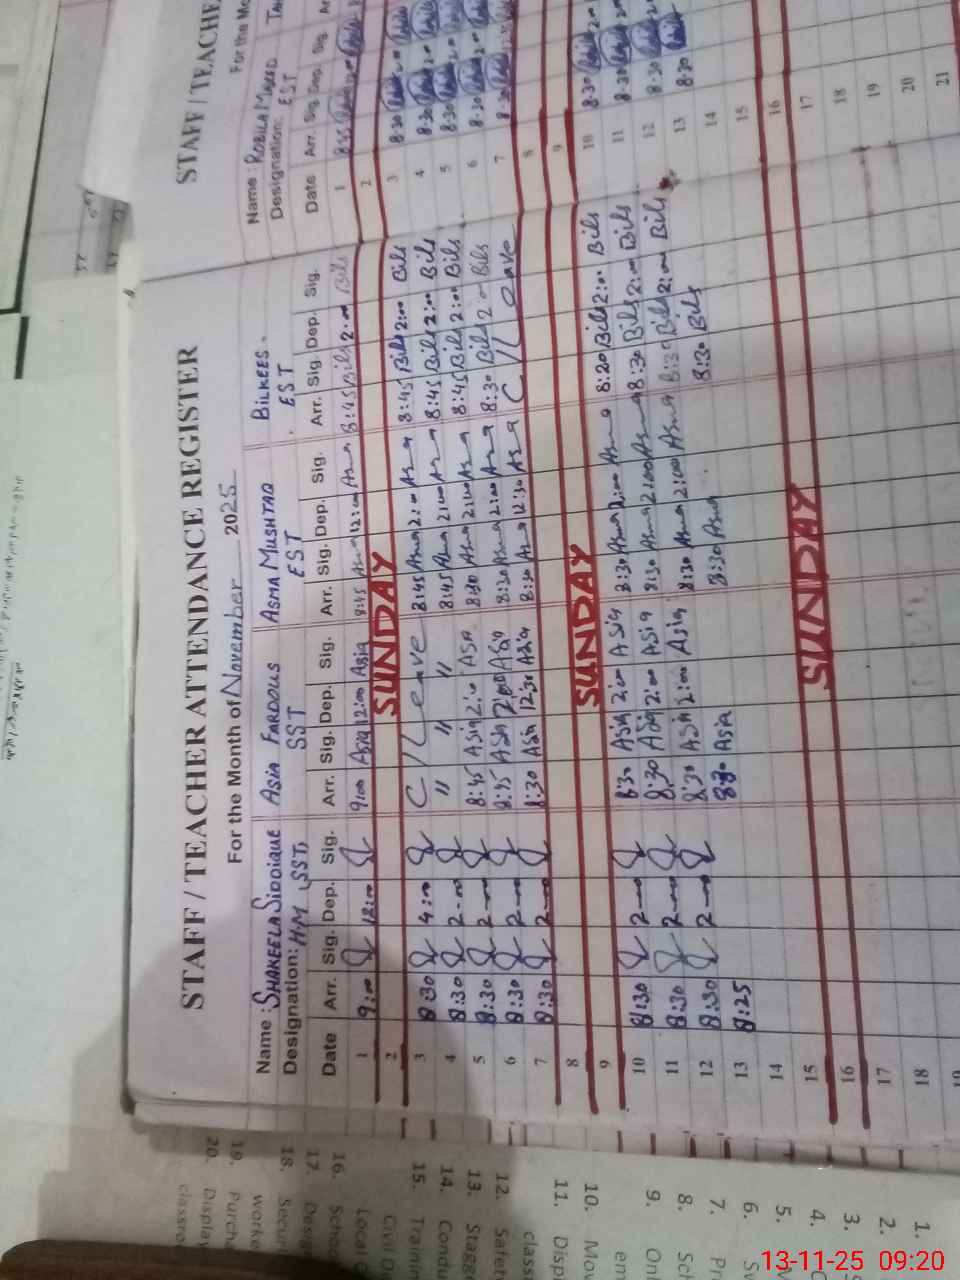 STAFF / TEACHER ATTENDANCE REGISTER
For the Month of November 2025
Name : SHAKEELA SIDDIQUE ASIA FARDOUS ASMA MUSHTAQ BILKEES.
Designation: H.M SST, SST EST EST
Date Arr. Sig. Dep. Sig. Arr. Sig. Dep. Sig. Arr. Sig. Dep. Sig. Arr. Sig. Dep. Sig.
1 9:00 12:00 9:00 Asia 12:00 Asia 8:45 Asma 12:00 Asma 8:45 Bils 2:00 Bils
2 SUNDAY
3 8:30 4:00 C/Leave 8:45 Asma 2:00 Asma 8:45 Bils 2:00 Bils
4 8:30 2:00 " " " 8:45 Asma 2:00 Asma 8:45 Bils 2:00 Bils
5 8:30 2:00 8:45 Asia 2:00 Asia 8:30 Asma 2:00 Asma 8:45 Bils 2:00 Bils
6 8:30 2:00 8:45 Asia 2:00 Asia 8:30 Asma 2:00 Asma 8:30 Bils 2:00 Bils
7 8:30 2:00 8:30 Asia 12:30 Asia 8:30 Asma 12:30 Asma C/Leave
8
9 SUNDAY
10 8:30 2:00 8:30 Asia 2:00 Asia 8:30 Asma 2:00 Asma 8:20 Bils 2:00 Bils
11 8:30 2:00 8:30 Asia 2:00 Asia 8:30 Asma 2:00 Asma 8:30 Bils 2:00 Bils
12 8:30 2:00 8:30 Asia 2:00 Asia 8:30 Asma 2:00 Asma 8:30 Bils 2:00 Bils
13 8:25 8:30 Asia 8:30 Asma 8:30 Bils
14
15
16 SUNDAY
17
18
19
STAFF / TEACHE
For the Mo
Name : ROBILA MAJEED
Designation: EST
Date Arr. Sig. Dep. Sig.
1
2
3 8:30
4 8:30
5 8:30
6 8:30
7 8:30
8
9
10 8:30
11 8:30
12 8:30
13 8:30
14
15
16
17
18
19
20
21
1.
2.
3.
4.
5.
6.
7.
8.
9.
10.
11. Disp
12. Safe
class
13. Stage
14. Condu
15. Trainin
Civil D
Local
16. Schoo
17. Desig
18. Secur
worke
19. Purch
20. Display
classro
13-11-25 09:20